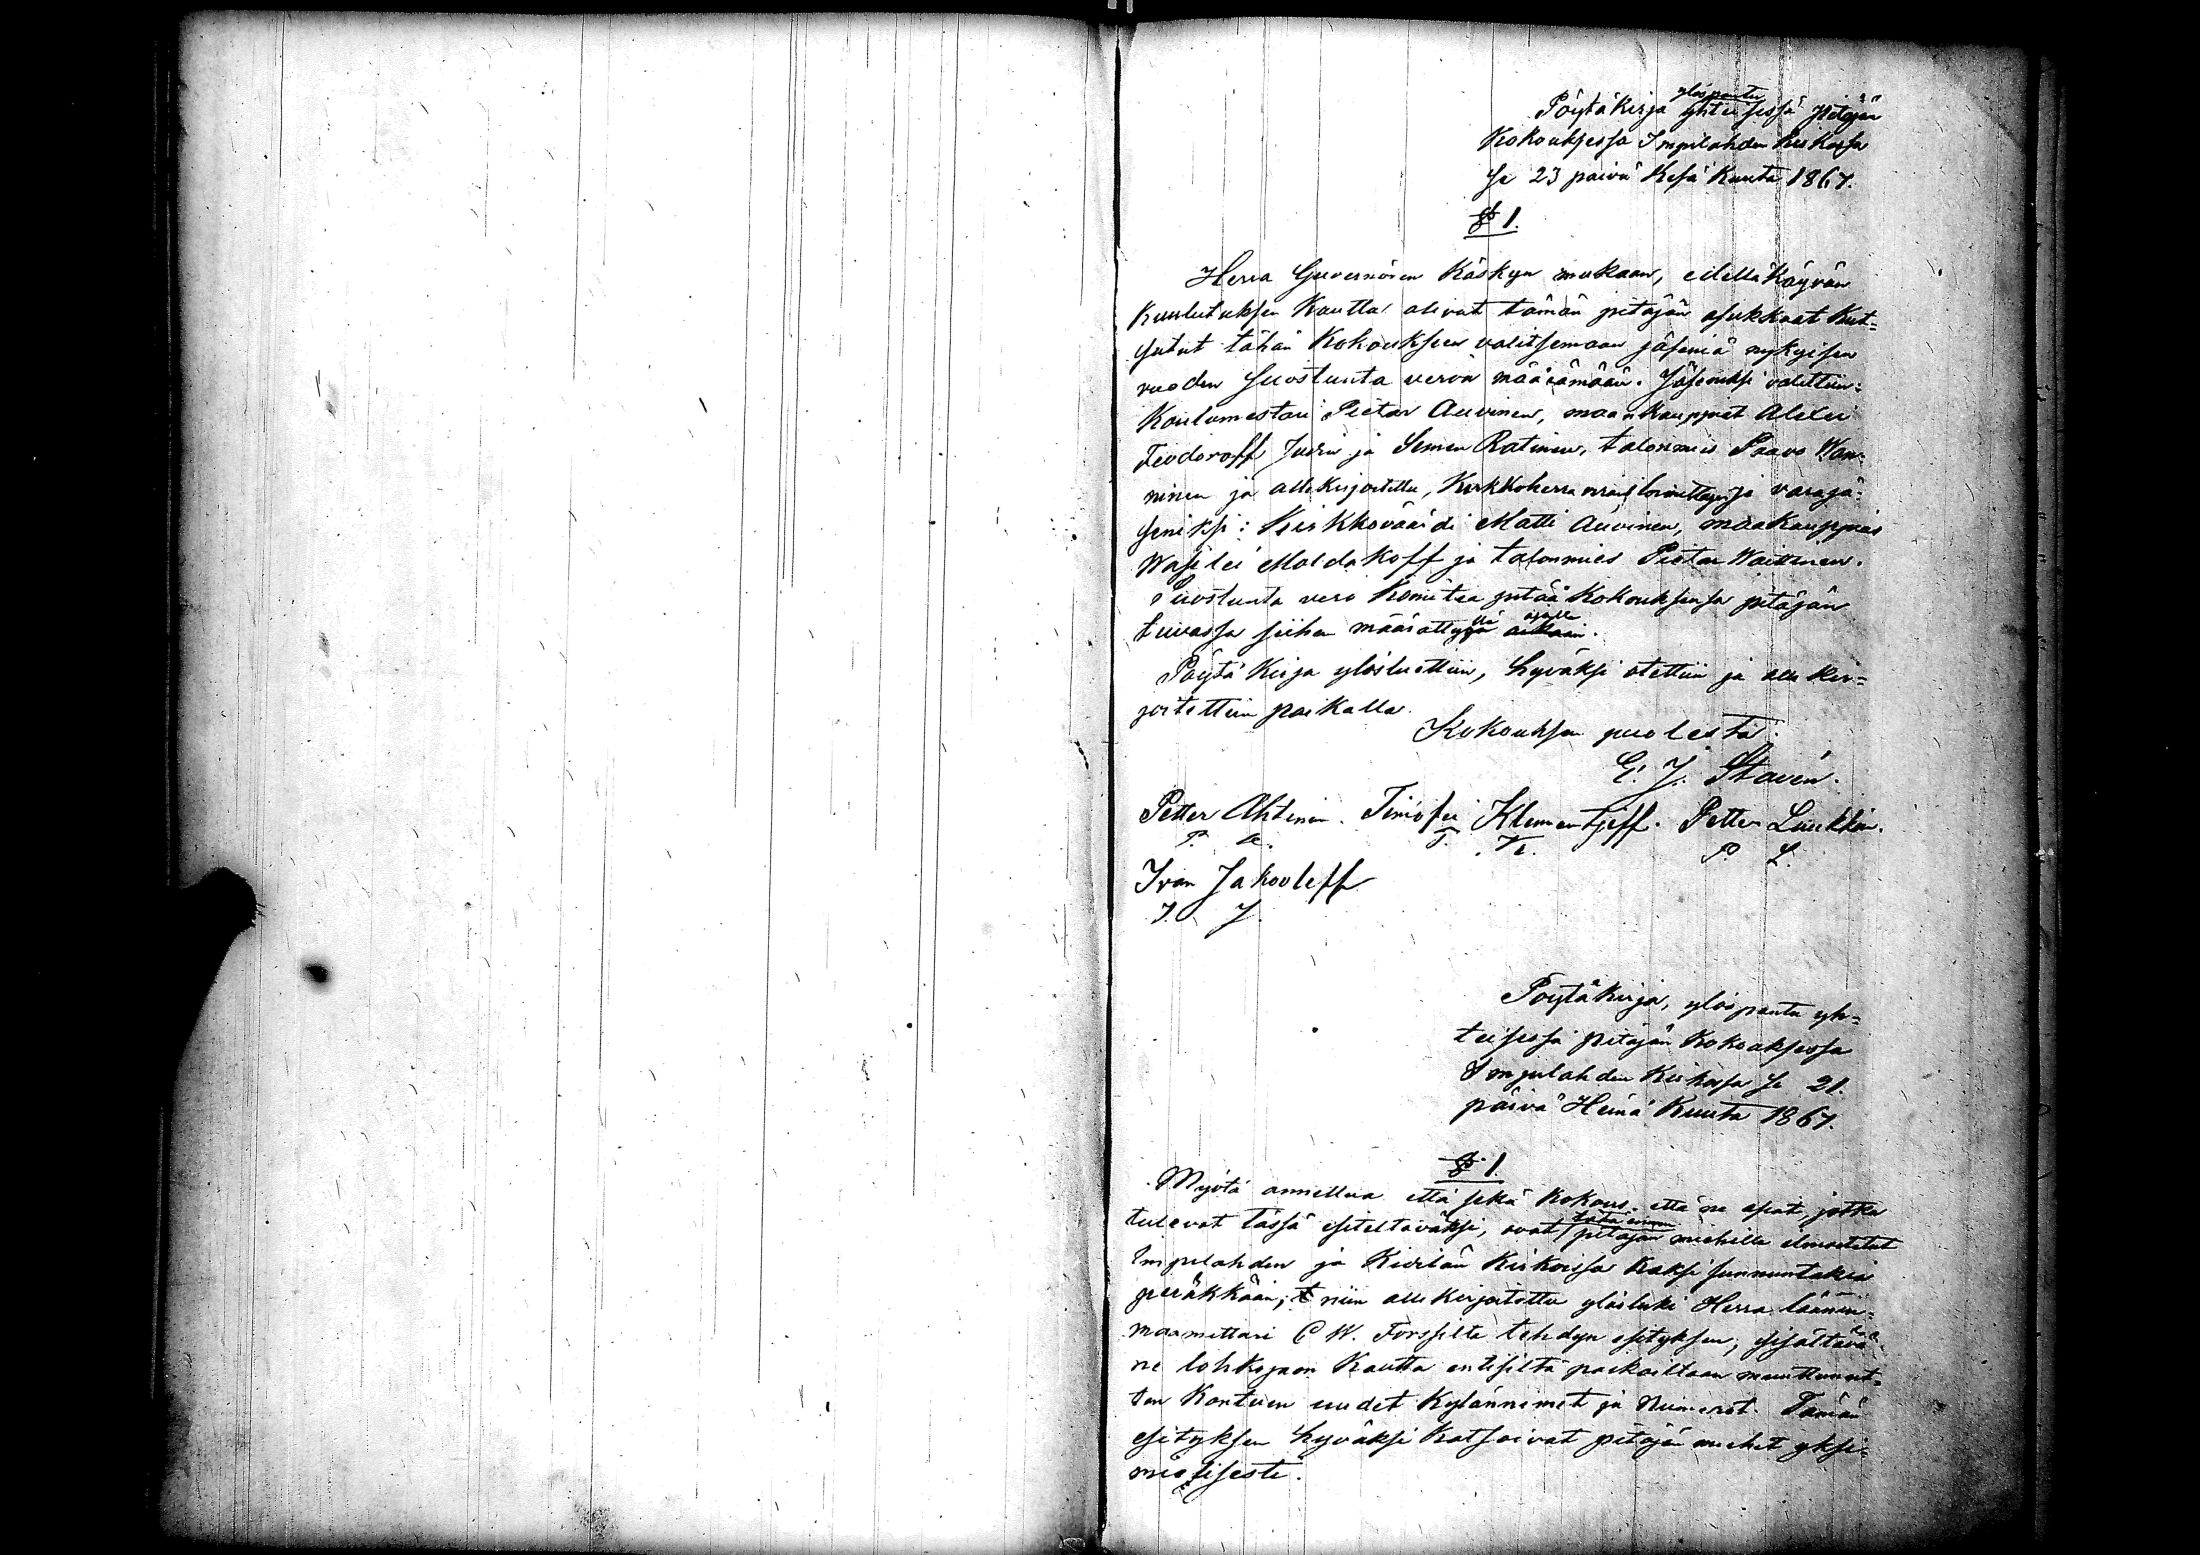 Pöytäkirja ylöspantu yhteisessä pitäjän
Kokouksessa Impilahden Kirkossa
se 23 päivä Kesä Kuuta 1867.
§ 1.
Herra Guvernörin Käskyn mukaan, edellä käyvän
Kuulutuksen Kautta olivat tämän pitäjän asukkaat Kut=
sutut tähän Kokoukseen valitsemaan jäseniä nykyisen
vuoden Suostunta veroa määräämään. Jäseniksi valittiin:
Koulumestari Pietar Auvinen, maankauppiat Alexei
Feodoroff Judin ja Semen Ratinen, talonmies Paavo Wan=
ninen ja allekirjoitettu, Kirkkoherra viran toimittaja ja varajä=
seniksi: Kirkkoväärdi Matti Auvinen, maakauppias
Wasilei Moldakoff ja talonmies Pietar Waittinen.
Suostunta vero Komitea pitää Kokouksensa pitäjän
tuvassa siihen määrättyyn llä aikaan ajalla.
Pöytä Kirja ylösluettiin, hyväksi otettiin ja alle kir=
joitettiin paikalla.
Kokouksen puolesta:
G. J. Stavén.
Petter Ahtinen. Timofei Klementjeff. Petter Liukkon.
P. A. T. K. P. L.
Ivan Jakovleff
I. J.
Pöytäkirja, ylöspantu yh=
teisessä pitäjän Kokouksessa
Impilahden Kirkossa se 21.
päivä Heinä Kuuta 1867.
§ 1.
Myötä annettua että sekä Kokous, että ne asiat, jotka
tulevat tässä esiteltäväksi, ovat pitäjän miehille ilmoitetut
Impilahden ja Kitilän Kirkoissa Kaksi sunnuntakia
peräkkään; niin allekirjoitettu ylösluki Herra läänin=
maamittari C W. Forssilta tehdyn esityksen, sisältävä
ne lohkojaon Kautta entisiltä paikoiltaan muuttunut=
ten Kontuin uudet Kylännimet ja Numerot. Tämän
esityksen hyväksi Katsoivat pitäjän miehet yksi=
mielisesti.